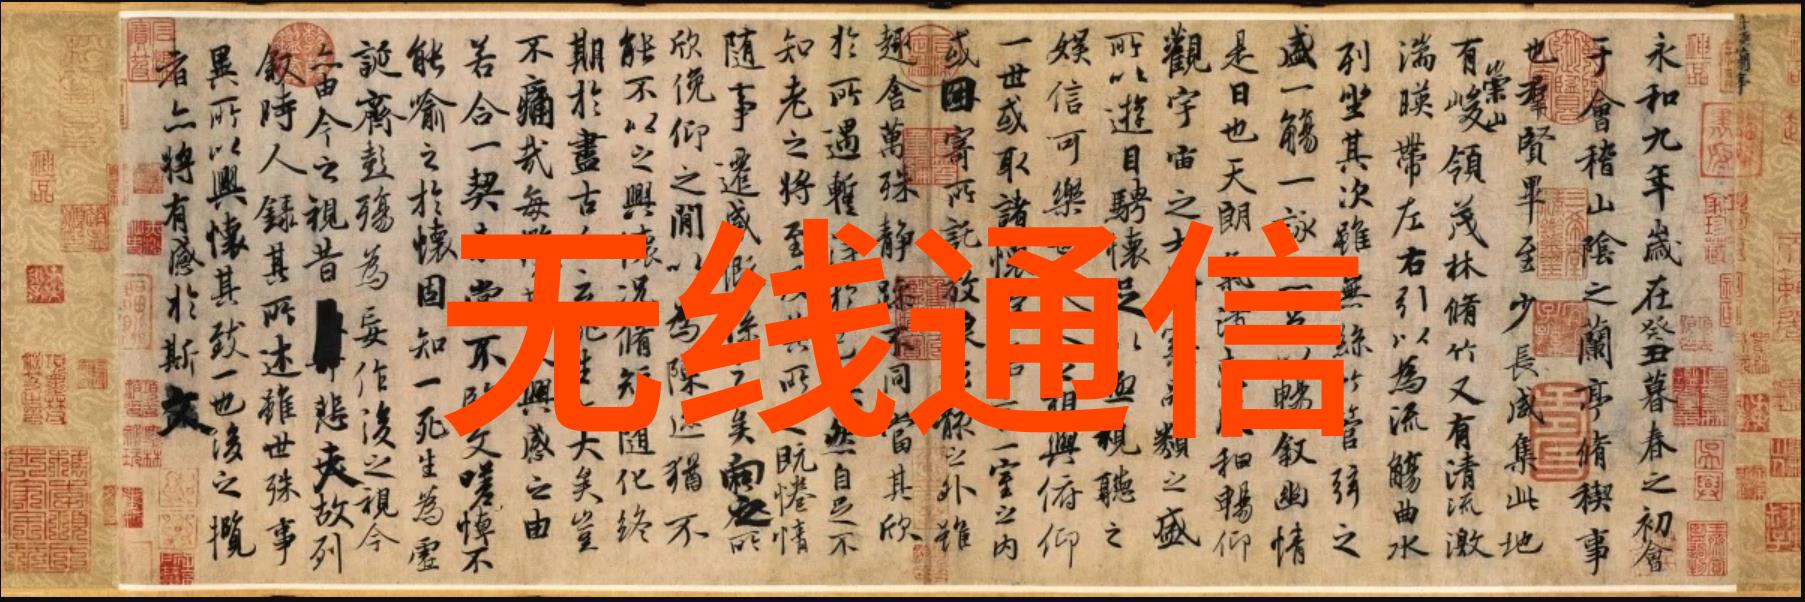 永和九年歲在癸丑暮春之初會
于會稽山陰之蘭亭脩稧事
也羣賢畢至少長咸集此地
有崇山峻領茂林脩竹又有清流激
湍暎帶左右引以為流觴曲水
列坐其次雖無絲竹管弦之
盛一觴一詠暢敘幽情
是日也天朗氣清和暢仰
觀宇宙之大類之盛
所以遊目騁懷足以視聽之
娛信可樂也相與俯仰
一世或取諸懷一室之內
或因寄所託放浪骸之外雖
趣舍萬殊静躁不同當其欣
於所遇蹔得於然自足不
知老之將至其所之既惓情
隨事遷感慨係之矣向之所
欣俛仰之閒以為陳迹猶不
能不以之興懷況脩短隨化終
期於盡古人云死生大矣豈
不痛哉每攬人興感之由
若合一契未嘗不臨文嗟悼不
能喻之於懷固知一死生為虛
誕齊彭殤為妄作後之視今
亦由今之視昔悲夫故列
敘時人錄其所述雖世殊事
異所以興懷其致一也後之攬
者亦將有感於斯文
无线通信